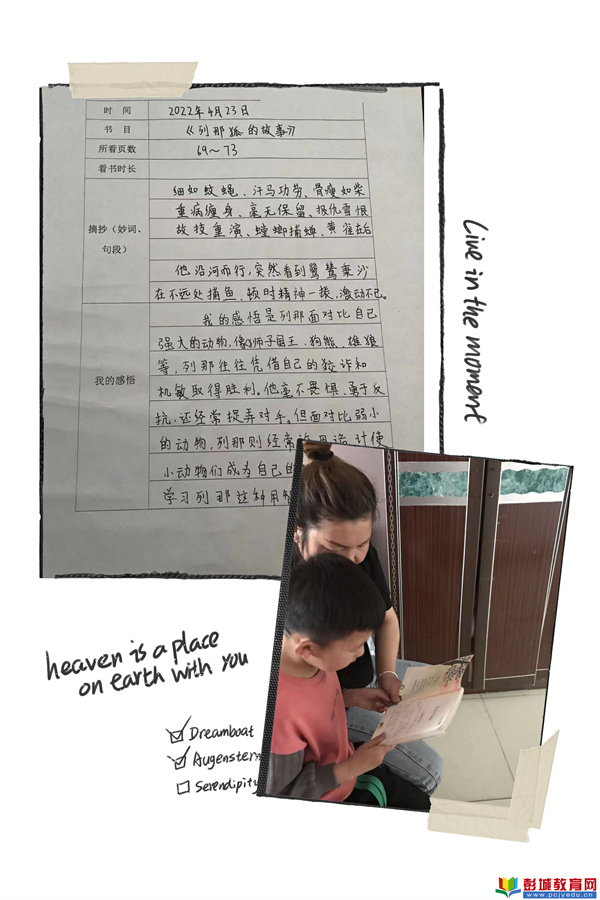 时 间
2022年4月23日
书 目
《列那狐的故事》
所看页数
69～73
看书时长
摘抄(妙词、
句段)
细如蚊蝇、汗马功劳、骨瘦如柴
重病缠身、毫无保留、报仇雪恨
故技重演、螳螂捕蝉、黄雀在后
他沿河而行,突然看到鹭鸶粟沙
在不远处捕鱼、顿时精神一振,激动不已。
我的感悟
我的感悟是列那面对比自己
强大的动物,像狮子国王、狗熊、雄狼
等,列那往往凭借自己的狡诈和
机敏取得胜利。他毫不畏惧、勇于反
抗,还经常捉弄对手。但面对比弱小
的动物,列那则经常 计使
小动物们成为自己的
学习列那这种用
Live in the moment
heaven is a place
on earth with you
Dreamboat
Augenstern
Serendipity
彭城教育网
www.pcjyedu.cn